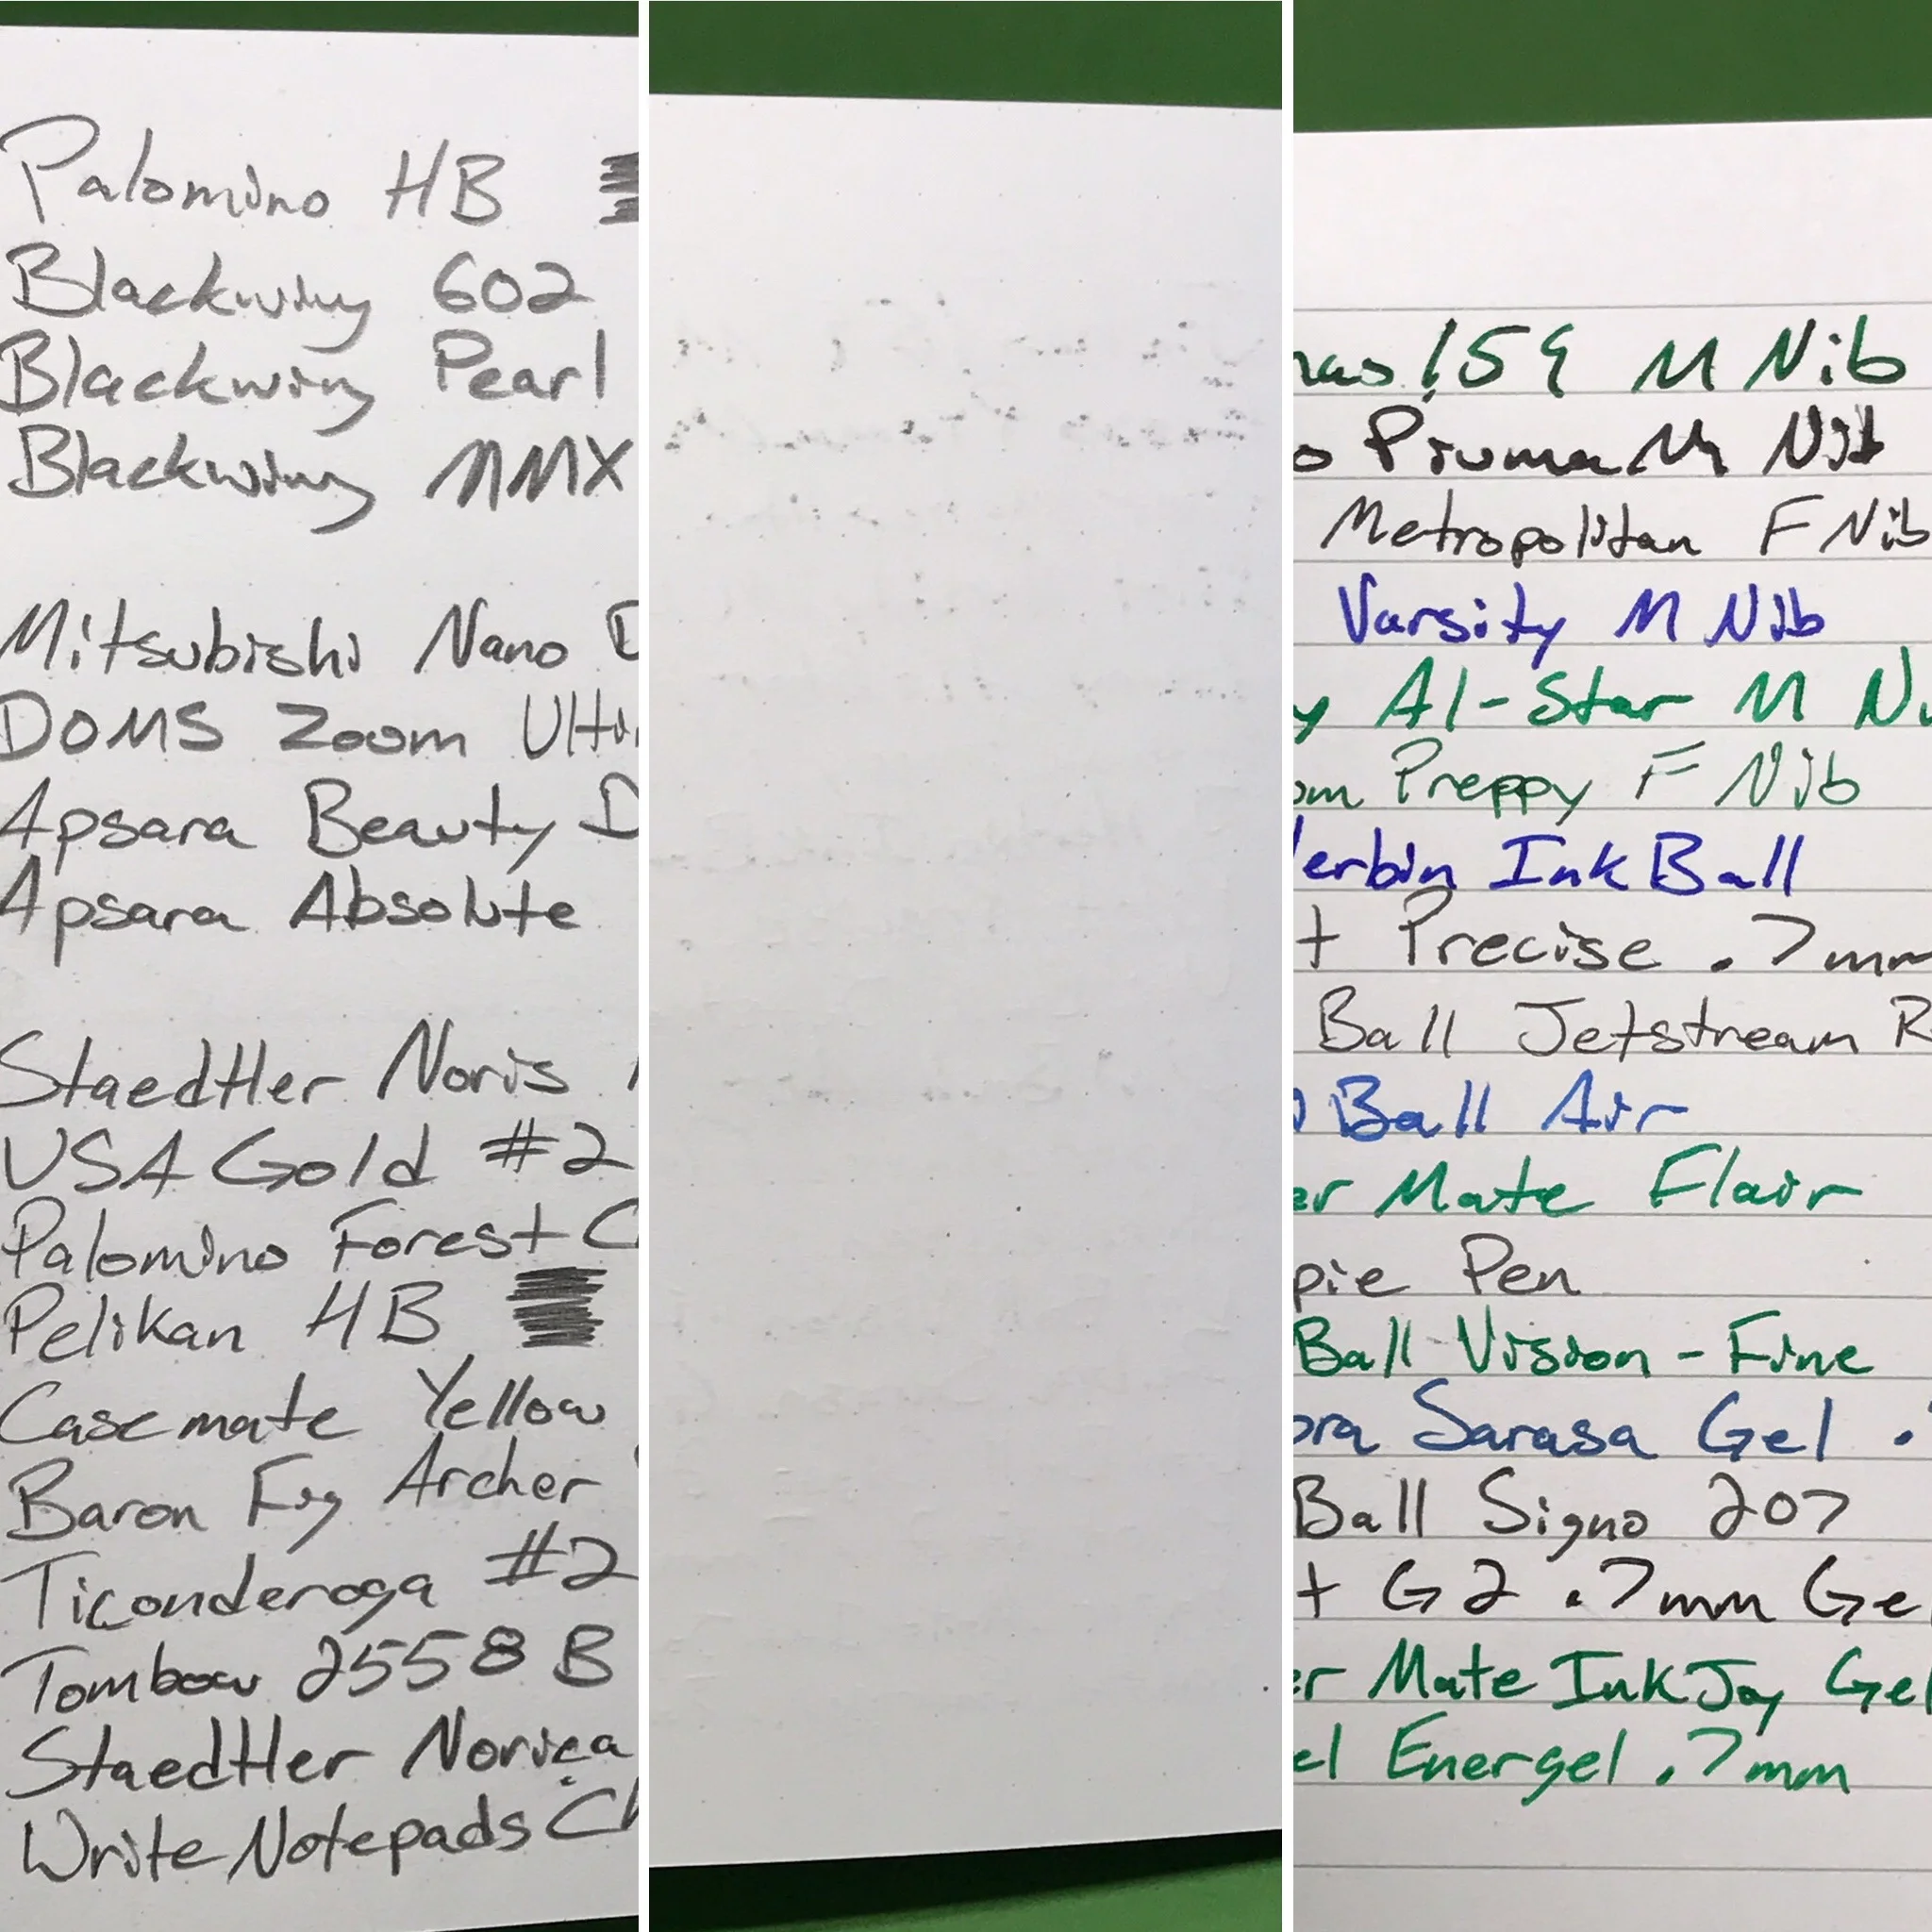 Palomino HB
Blackwing 602
Blackwing Pearl
Blackwing MMX
Mitsubishi Nano D
DOMS Zoom Ultr
Apsara Beauty D
Apsara Absolute
Staedtler Noris
USA Gold #2
Palomino Forest C
Pelikan HB
Casemate Yellow
Baron Fig Archer
Ticonderoga #2
Tombow 2558 B
Staedtler Norica
Write Notepads Ch
nas 159 M Nib
o Piuma M Nib
Metropolitan F Nib
Varsity M Nib
y Al-Star M Ni
om Preppy F Nib
erbin Ink Ball
t Precise .7mm
Ball Jetstream R
Ball Air
er Mate Flair
pie Pen
Ball Vision - Fine
bra Sarasa Gel .
Ball Signo 207
t G2 .7mm Ge
er Mate InkJoy Gel
el Energel .7mm